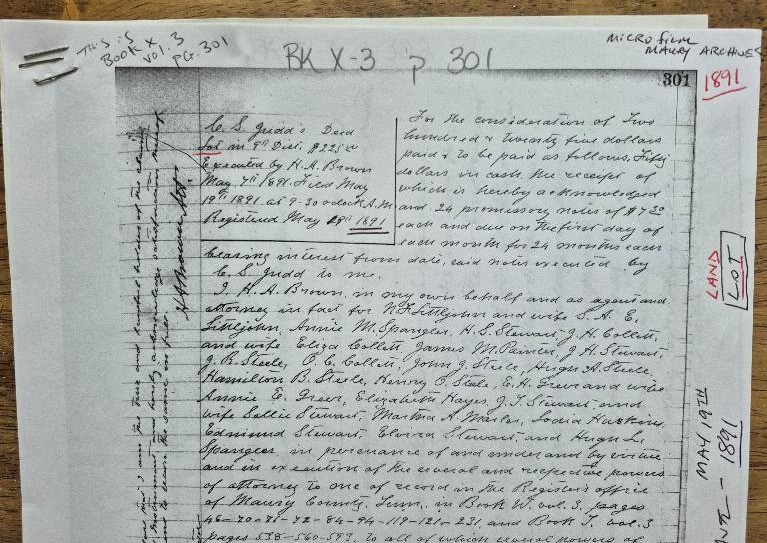 This is
Book X
vol. 3
PG. 301
BK X-3 p 301
MICROFILM
MAURY ARCHIVES
301
1891
C. S. Judd's Deed
Lot in 9th Dist. $225.00
Executed by H. A. Brown
May 7th 1891. Filed May
19th 1891 at 9-30 oclock A.M.
Registered May 29th 1891
For the consideration of Two
hundred & twenty five dollars
paid & to be paid as follows, Fifty
dollars in cash the receipt of
which is hereby acknowledged
and 24 promissory notes of $7.30
each and due on the first day of
each month for 24 months each
bearing interest from date, said notes executed by
C. S. Judd to me.
I H. A. Brown, in my own behalf and as agent and
attorney in fact for N. F. Littlejohn and wife S. A. E.
Littlejohn, Annie M. Spangler, H. C. Stewart, J. H. Collett,
and wife Eliza Collett James M. Painter, J. H. Stewart,
J. R. Steele, O. C. Collett, John J. Steele, Hugh A. Steele,
Hamilton B. Steele, Henry O. Steele, E. H. Greer and wife
Annie E. Greer, Elizabeth Hayes, J. T. Stewart and
wife Sallie Stewart, Martha A. Marler, Sodia Haskins,
Edmund Stewart, Elvira Stewart, and Hugh L.
Spangler, in persuance of and under and by virtue
and in execution of the several and respective powers
of attorney to me of record in the Register's office
of Maury County, Tenn., in Book W. vol. 3, pages
46-70-71-72-84-94-119-121-231, and Book T. vol. 3
pages 538-560-593, to all of which several powers of
H A Brown Att.
LAND
LOT
MAY 19TH
1891